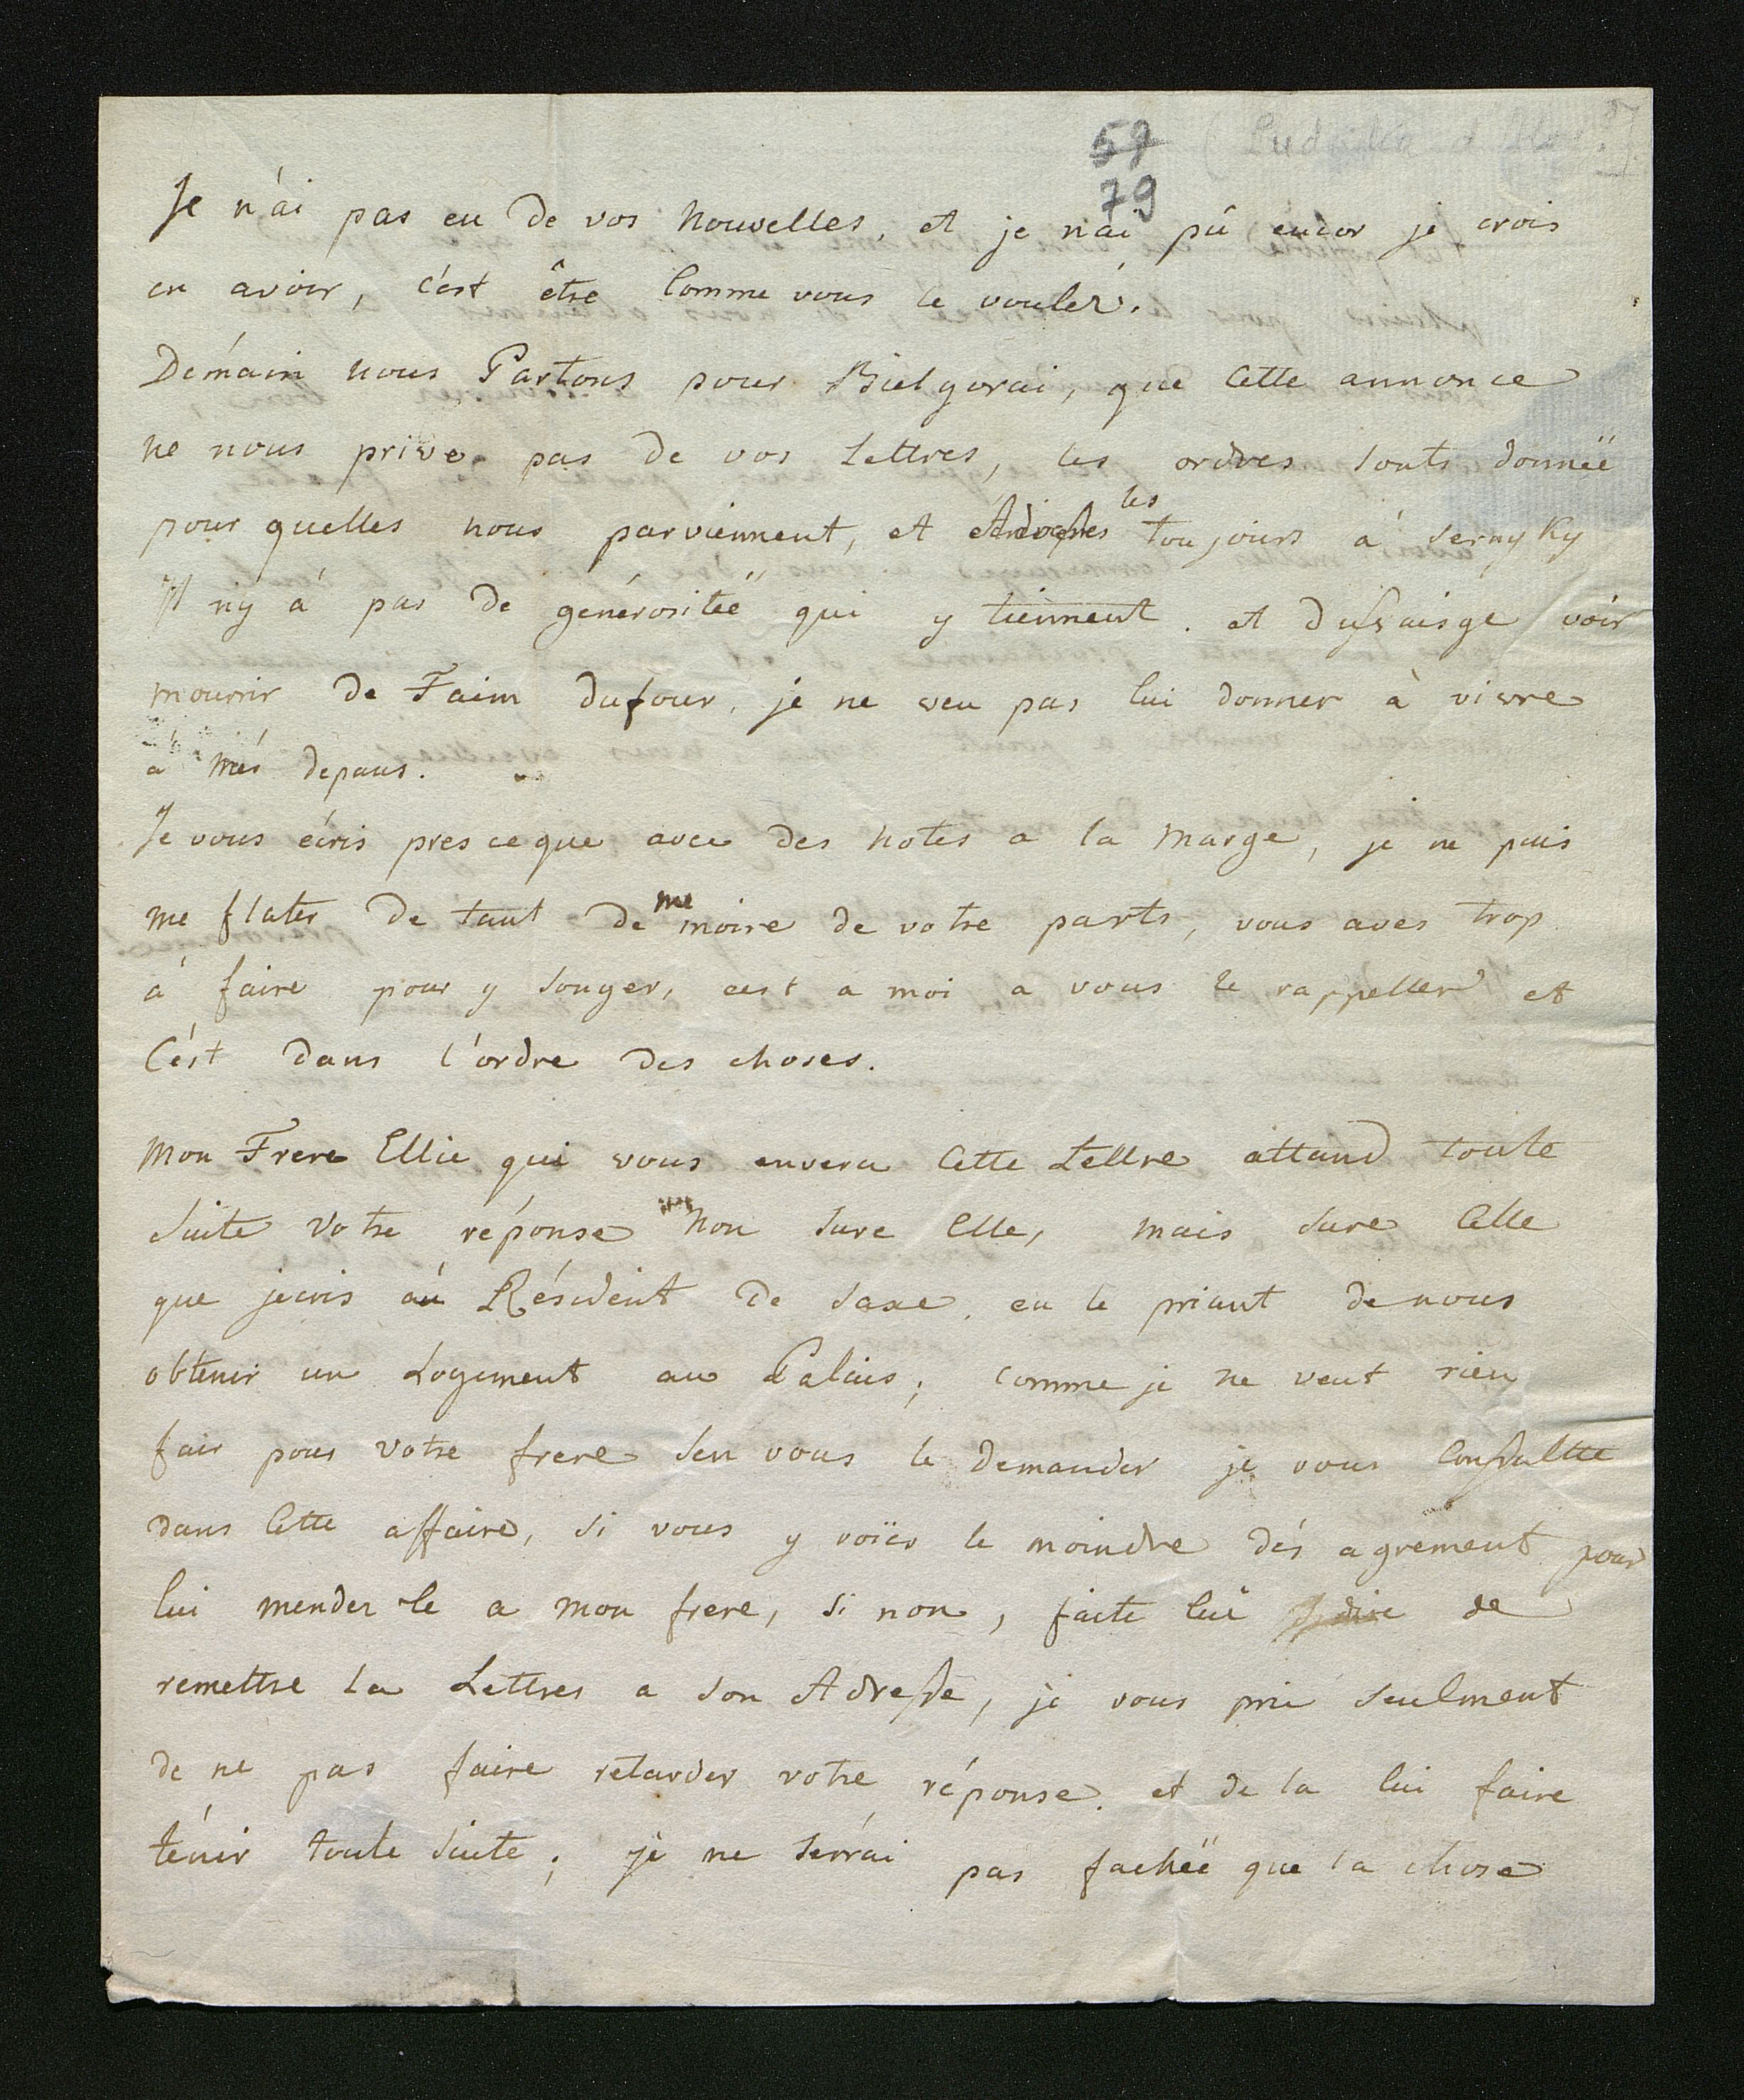 57
79
Je n'ai pas eu de vos Nouvelles, et je n'ai pû encor je crois
en avoir, c'est être Comme vous le vouléz.
Démain nous Partons pour Bielgorai, que Cette annonce
ne nous prive pas de vos Lettres, les ordres sonts donnéé
pour quelles nous parviennent, et Adresses les toujours á Serny Ky
Il n'y á pas de génerositéé qui y tiennent. et voir
mourrir de Faim dufour, je ne veu pas lui donner à vivre
a més depaus.
Je vous écris pres ce que avec des notes a la Marge, je ne puis
me flater de tant de memoire de votre parts, vous aves trop
á faire pour y songer, cest a moi a vous le rappeller et
C'ést dans l'ordre des choses.
Mon Frere Ellie qui vous envera Cette Lettre attand toute
Suite votre réponse Non sure Elle, mais sure Celle
que jecris aú Résident de Saxe. en le priant de nous
obtenir un Logement au Palais; comme je ne veut rien
fair pour votre frere sen vous le demander je vous Consultte
dans Cette affaire, si vous y voïes le moindre dés agrément pour
lui mender le a mon frere, si non, faite lui dire de
remettre la Lettres a son Adresse, je vous prie seulment
de ne pas faire retarder votre réponse. et de la lui faire
ténir toute suite; je ne serrai pas fachéé que la chose